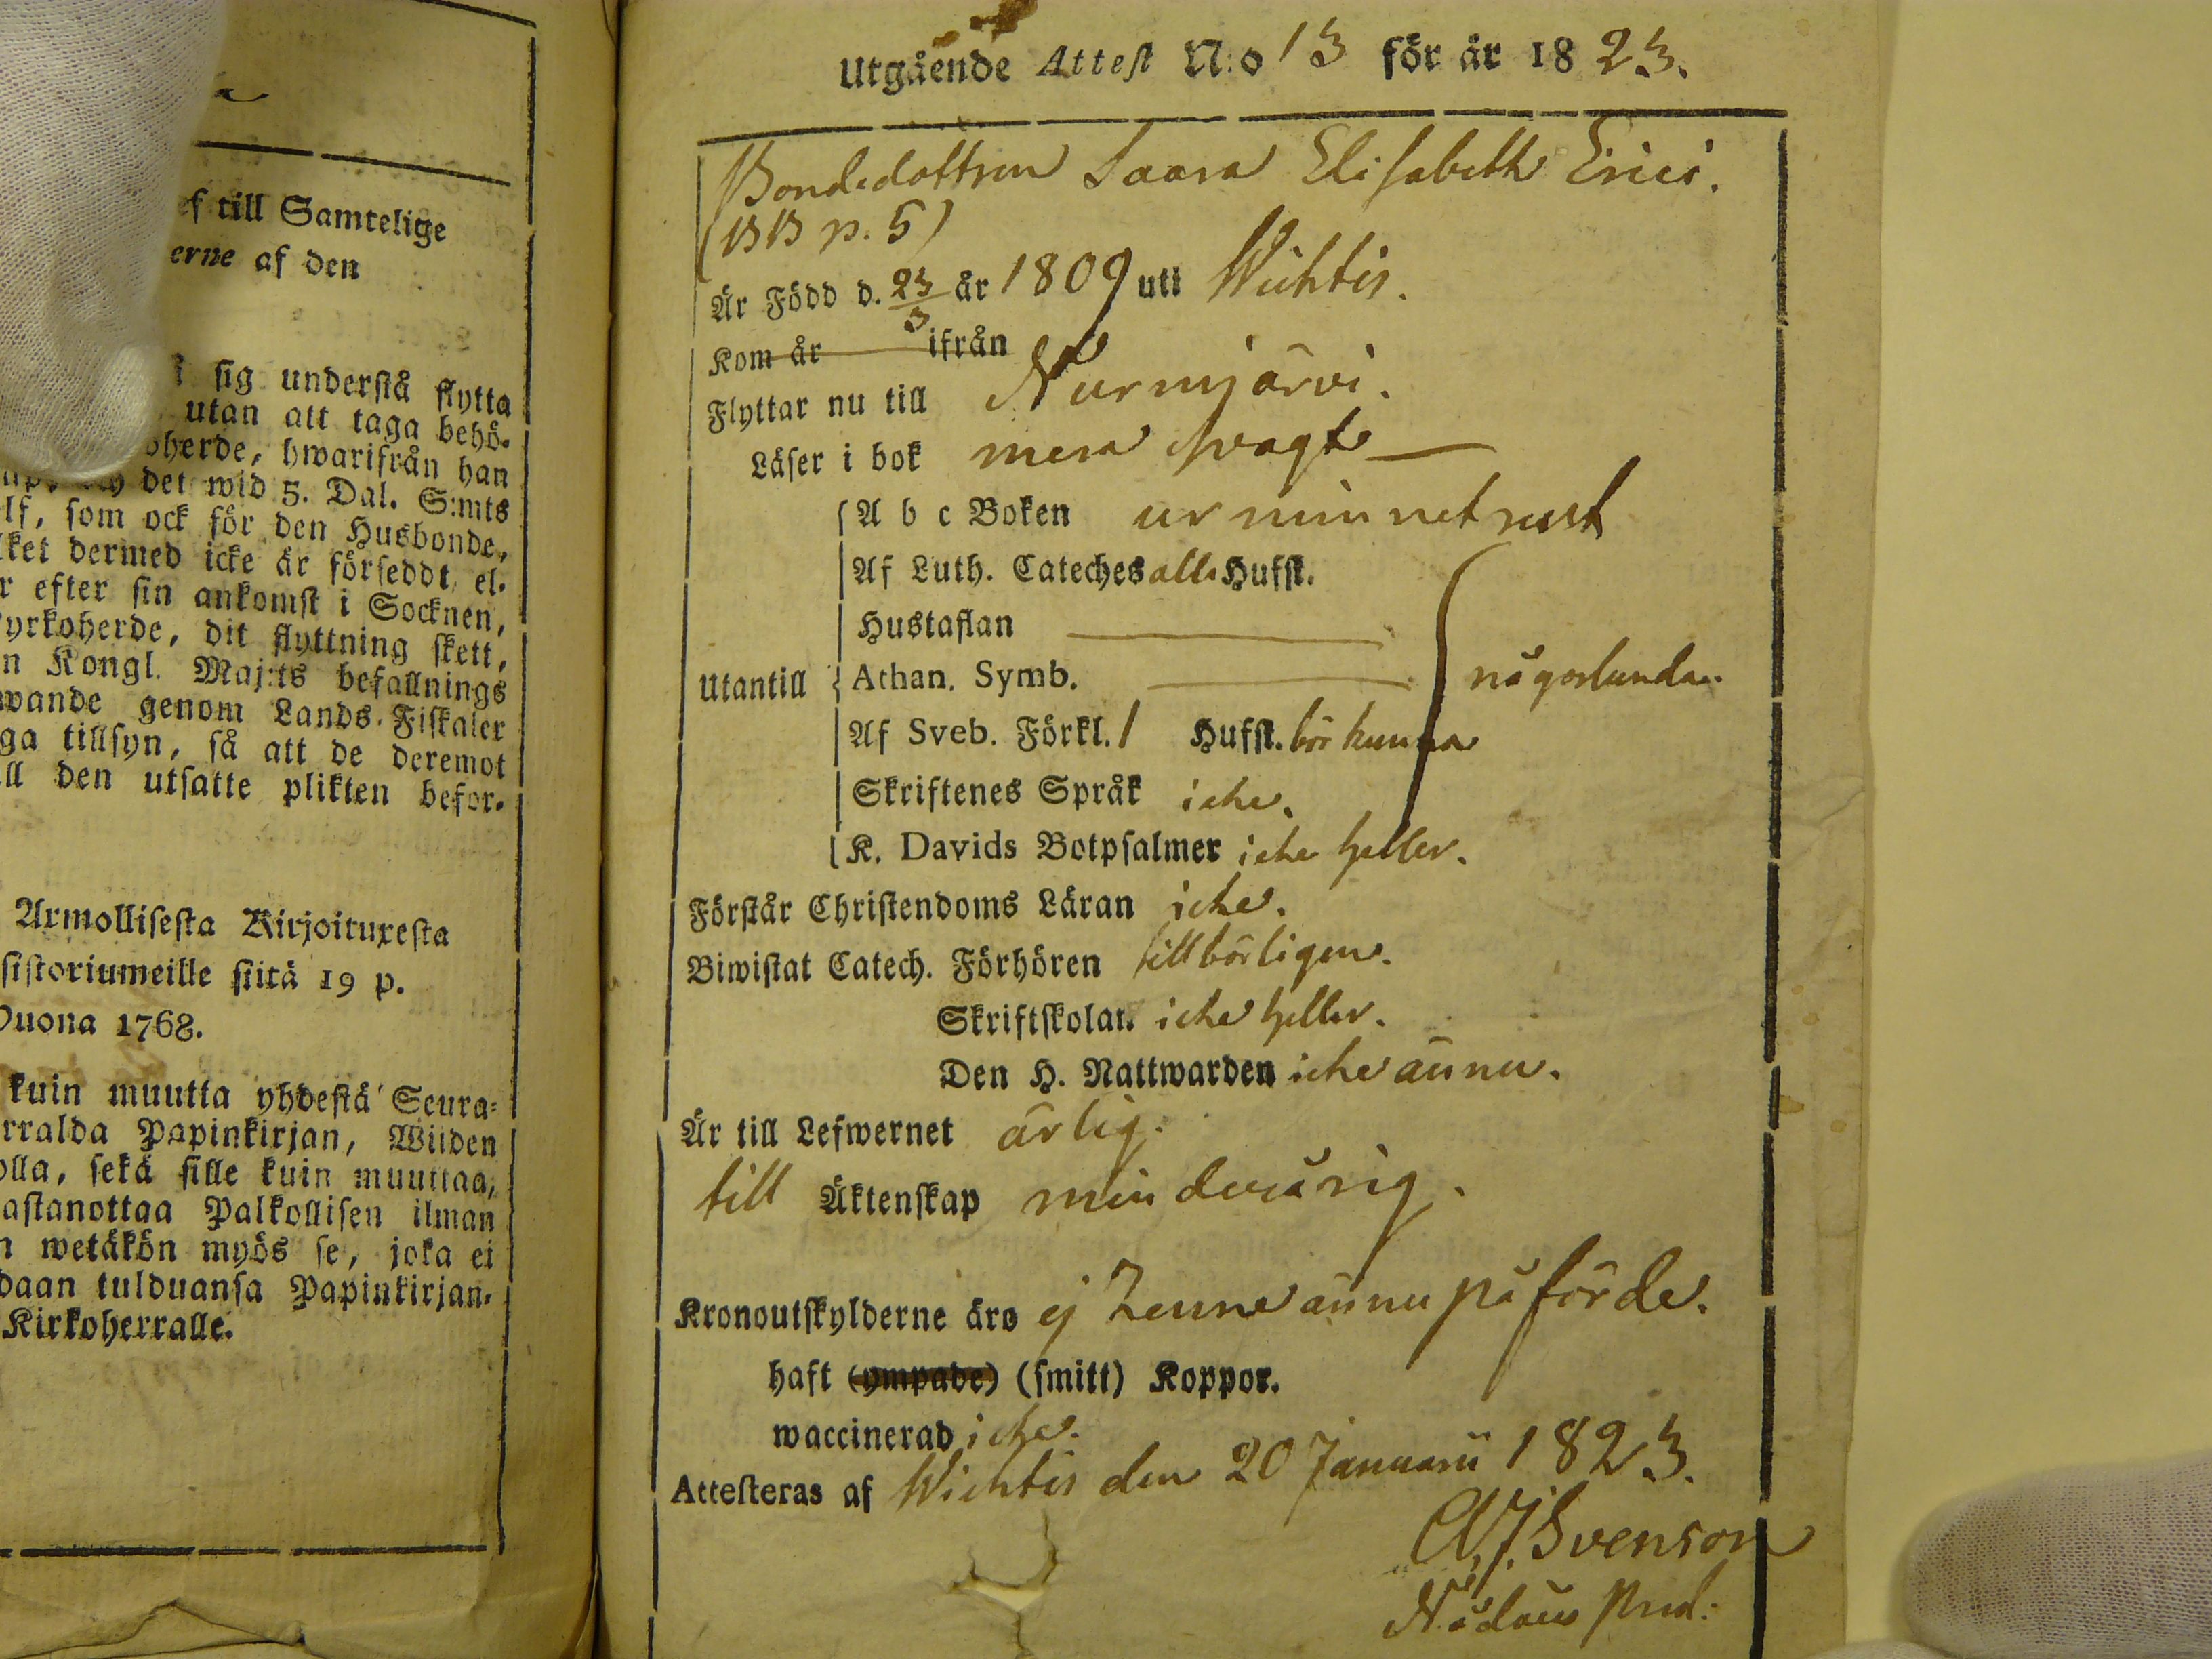 ef till Samtelige
erne af den
i sig understå flytta
utan att taga behö-
oherde, hwarifrån han
det wid 5. Dal. S:mts
lf, som ock för den Husbonde,
lket dermed icke är förseddt, el-
r efter sin ankomst i Socknen,
yrkoherde, dit flyttning skett,
n Kongl. Maj:ts befallnings
wande genom Lands-Fiskaler
ga tillsyn, så att de deremot
ll den utsatte plikten befor-
Armollisesta Kirjoituxesta
sistoriumeille siitä 19 p.
Duona 1768.
kuin muutta yhdestä Seura-
rralda Papinkirjan, Wiiden
olla, sekä sille kuin muuttaa,
astanottaa Palkollisen ilman
n wetäkön myös se, joka ei
daan tulduansa Papinkirjan-
Kirkoherralle.
Utgående Attest N:o 13 för år 1823.
Bondedottren Saara Elisabeth Erici.
(BB p. 5)
Är Född d. 23/3 år 1809 uti Wichtis.
Kom år ifrån
Flyttar nu till Nurmijärvi.
Läser i bok mera svagt
A b c Boken ur minnet rent
Af Luth. Cateches alla Hufst.
Hustaflan
Utantill Athan. Symb. någorlunda.
Af Sveb. Förkl. 1 Hufst. bör kunna
Skriftenes Språk icke.
K. Davids Botpsalmer icke heller.
Förstår Christendoms Läran icke.
Biwistat Catech. Förhören tillbörligen.
Skriftskolan icke heller.
Den H. Nattwarden icke ännu.
Är till Lefwernet ärlig.
till Äktenskap minderårig.
Kronoutskylderne äro ej henne ännu påförde.
haft (ympade) (smitt) Koppor.
waccinerad icke.
Attesteras af Wichtis den 20 Januarii 1823.
A.J. Svenson
Nådårs Pred: